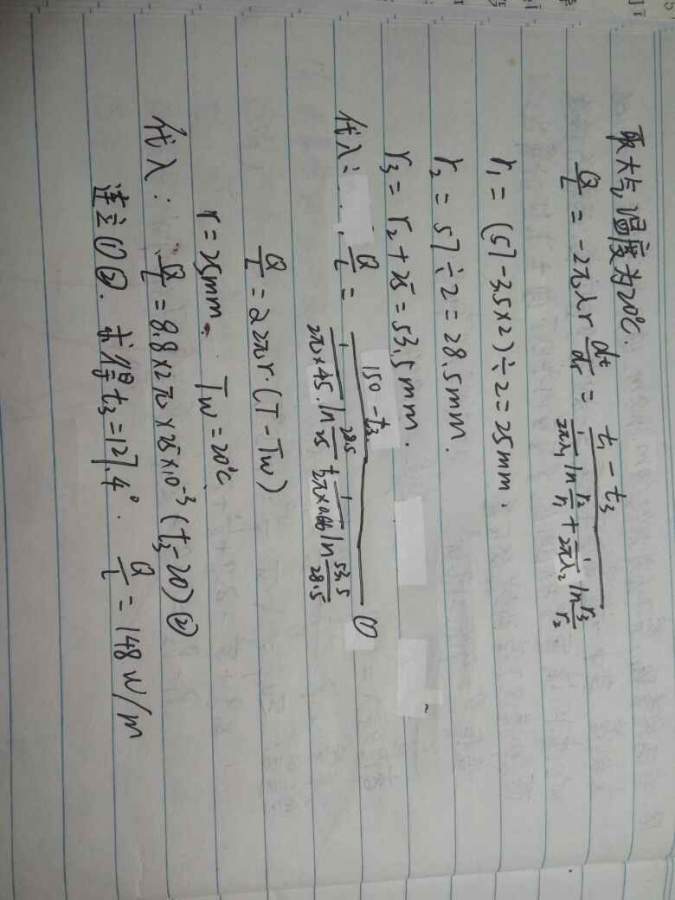 取大气温度为20℃.
Q/L = -2πλr dt/dr = (t₁ - t₃)/(1/2πλ₁ ln r₂/r₁ + 1/2πλ₂ ln r₃/r₂)
r₁ = (57-3.5×2)÷2 = 25mm.
r₂ = 57÷2 = 28.5mm.
r₃ = r₂+25 = 53.5mm.
代入: Q/L = (150 - t₃)/(1/2π×45 · ln 28.5/25 + 1/2π× ln 53.5/28.5) ①
Q/L = α2πr·(T-Tw)
r = 25mm. Tw = 20℃
代入: Q/L = 8.8×2π×25×10⁻³(t₃-20) ②
连立①②. 求得t₃=127.4°. Q/L = 148 W/m